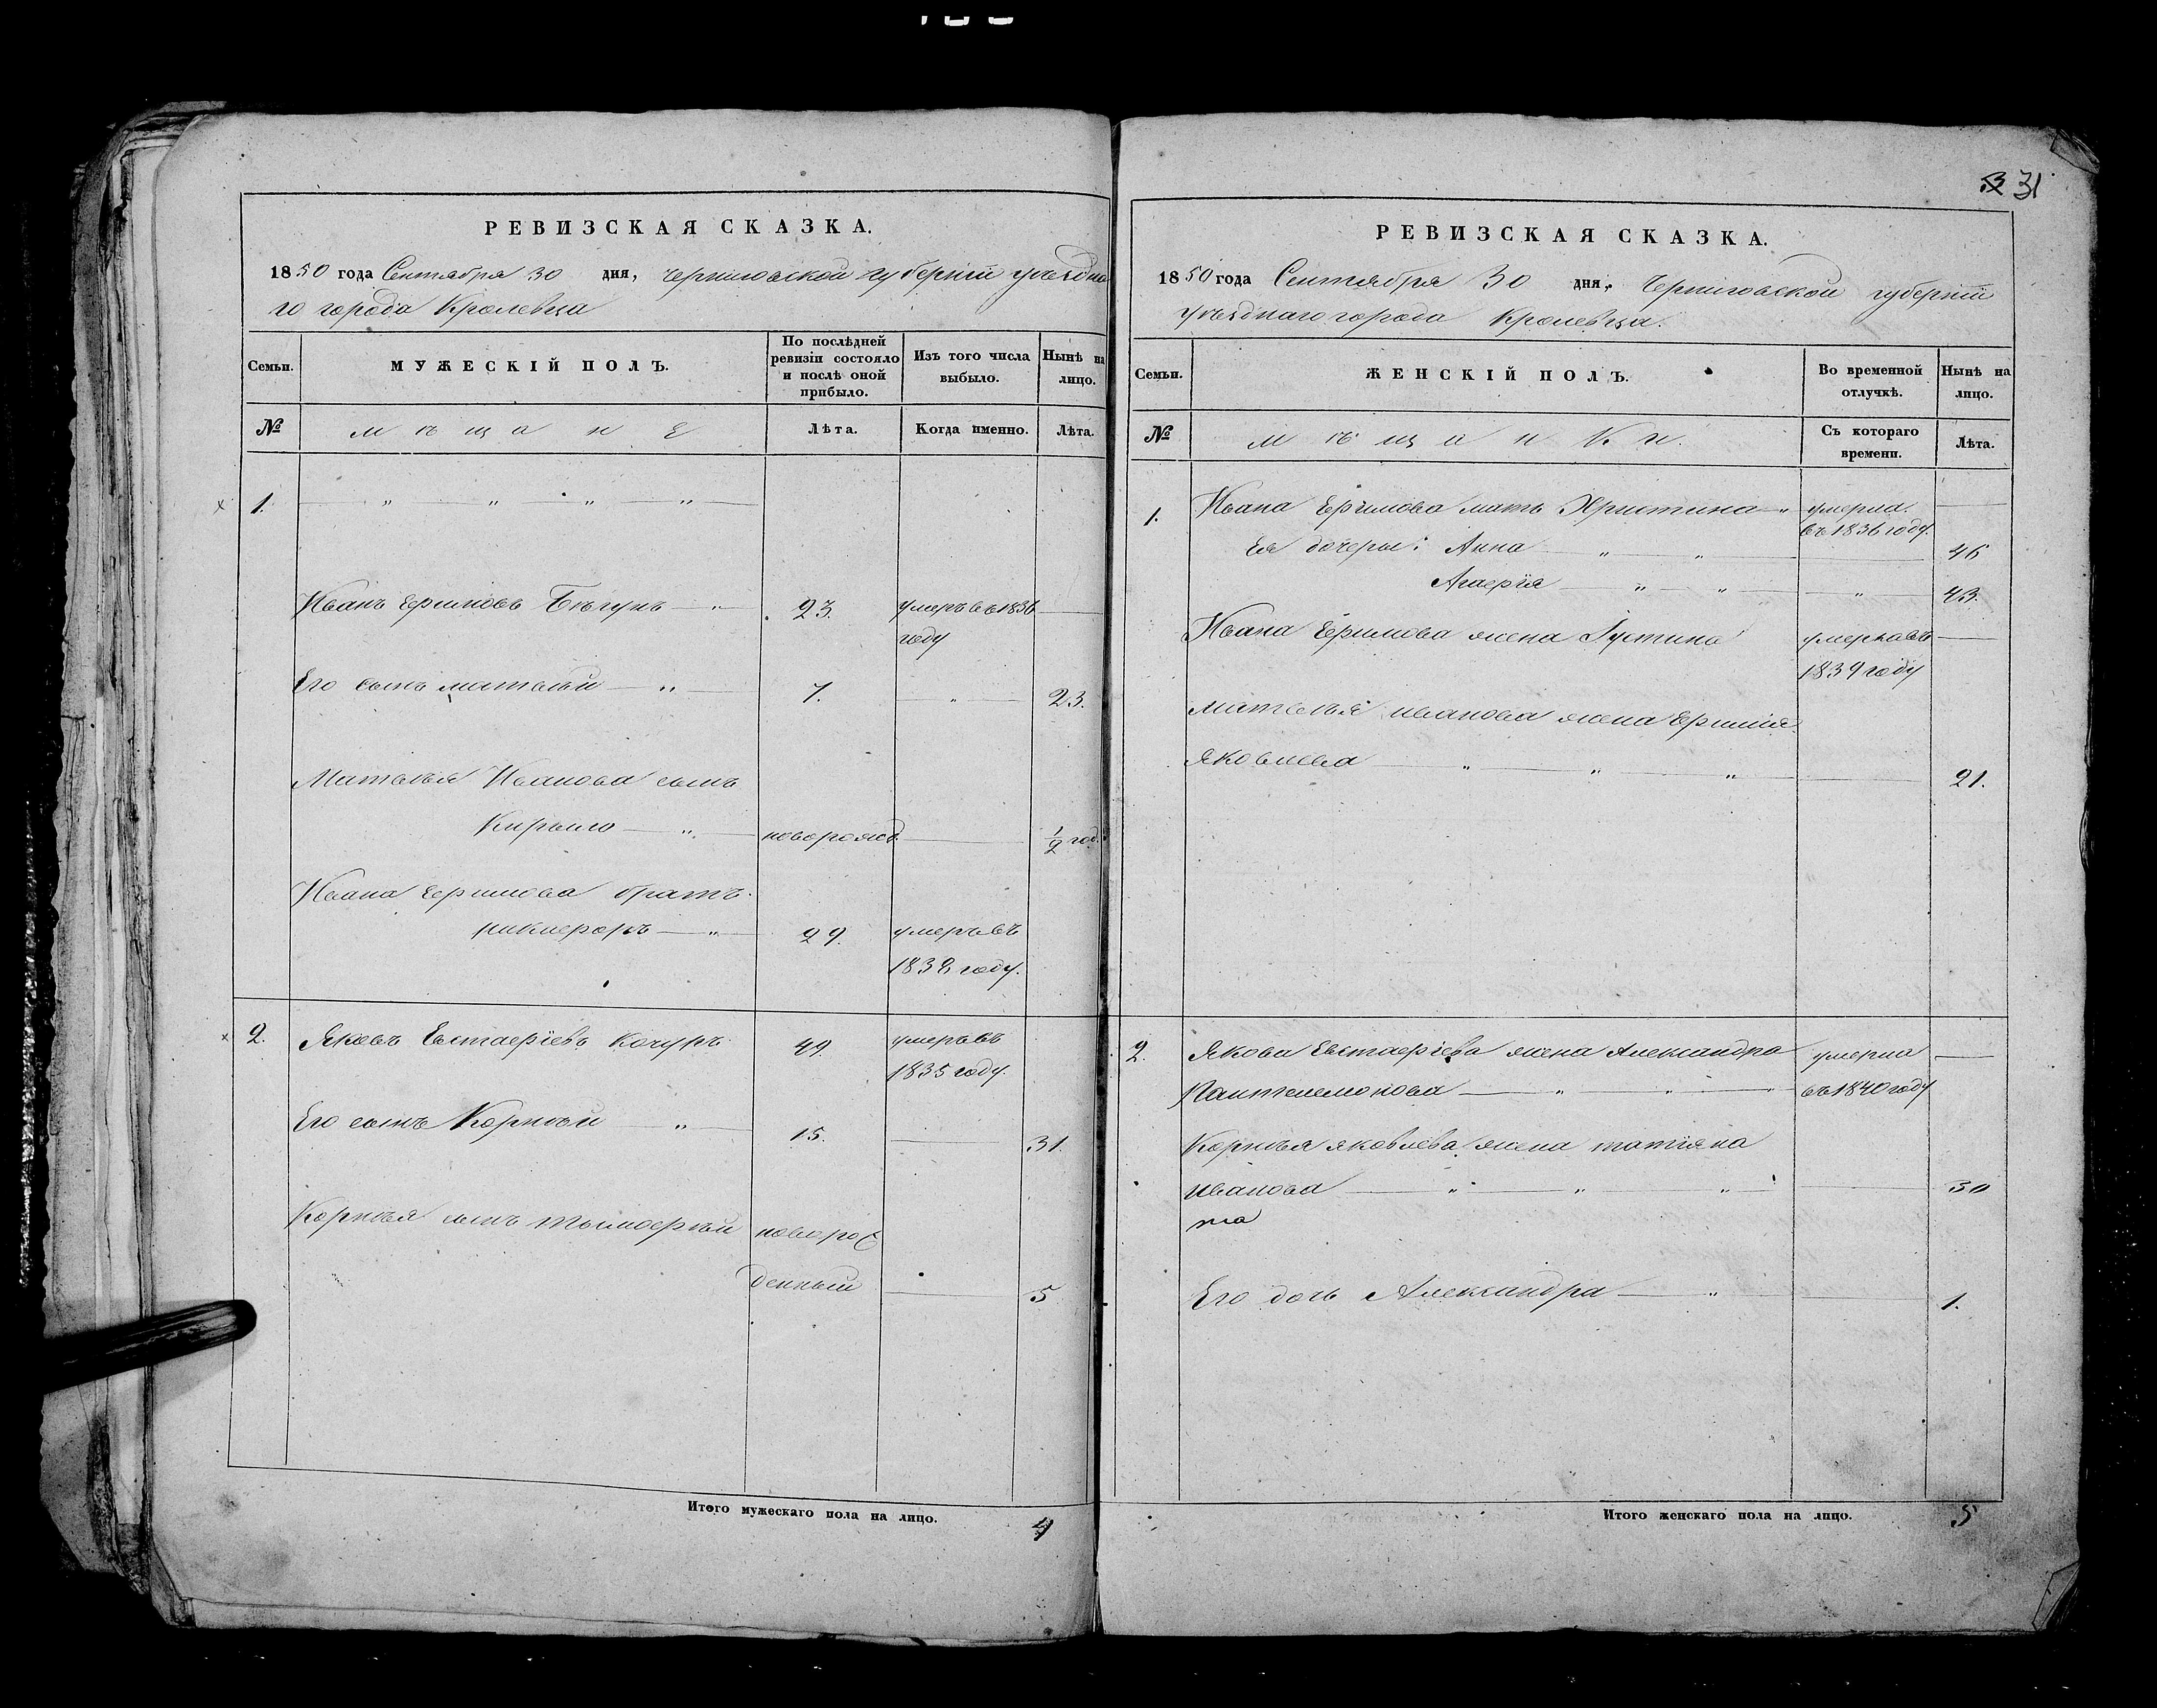 РЕВИЗСКАЯ СКАЗКА.
1850 года Сентября 30 дня, Черниговской губерніи уѣздна
го города Кролевца
Семьи.
МУЖЕСКІЙ ПОЛЪ.
По послѣдней ревизіи состояло и послѣ оной прибыло.
Изъ того числа выбыло.
Нынѣ на лицо.
№
мѣщане
Лѣта.
Когда именно.
Лѣта.
1.
Иванъ Ефимовъ Бѣгунъ 23. умеръ въ 1836
году
Его сынъ Матвѣй 7. 23.
Матвѣя Иванова сынъ
Кирыло новорожд. 1/2 год.
Ивана Ефимова братъ
Никифоръ 29. умеръ въ
1832 году.
2. Яковъ Евстафіевъ Кочуръ 49. умеръ въ
1835 году.
Его сынъ Корнѣй 15. 31.
Корнѣя сынъ Тымофѣй новорож
денный 5
Итого мужескаго пола на лицо. 4
31
РЕВИЗСКАЯ СКАЗКА.
1850 года Сентября 30 дня, Черниговской губерніи
уѣзднаго города Кролевца.
Семьи.
ЖЕНСКІЙ ПОЛЪ.
Во временной отлучкѣ.
Нынѣ на лицо.
№
мѣщанки.
Съ котораго времени.
Лѣта.
1. Ивана Ефимова мать Христина умерла
въ 1836 году.
Ея дочеры: Анна 46
Агафія 43.
Ивана Ефимова жена Іустина умерла въ
1839 году
Матвѣя Иванова жена Ефимія
Яковлева 21.
2. Якова Евстафіева жена Александра умерла
Пантелемонова въ 1840 году
Корнѣя Яковлева жена Татіяна
Иванова 30
Его дочь Александра 1.
Итого женскаго пола на лицо. 5